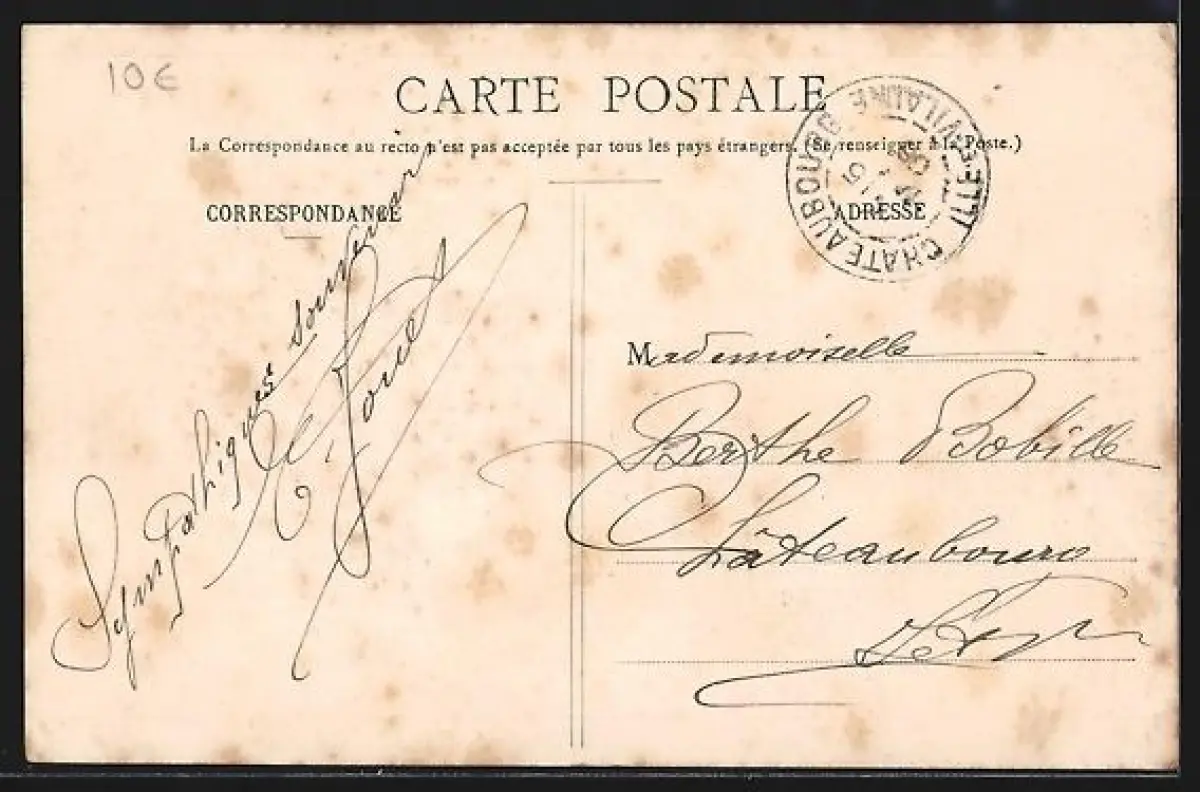 10€
CARTE POSTALE
La Correspondance au recto n'est pas acceptée par tous les pays étrangers. (Se renseigner à la Poste.)
CHATEAUBOURG ILLE-ET-VILAINE
CORRESPONDANCE
ADRESSE
Sympathiques souvenirs
Mademoiselle
Berthe Bobille
Châteaubourg